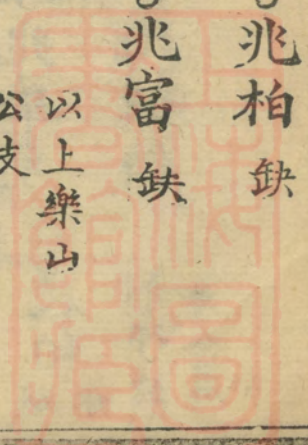 兆柏 缺
兆富 缺
以上樂山
公支